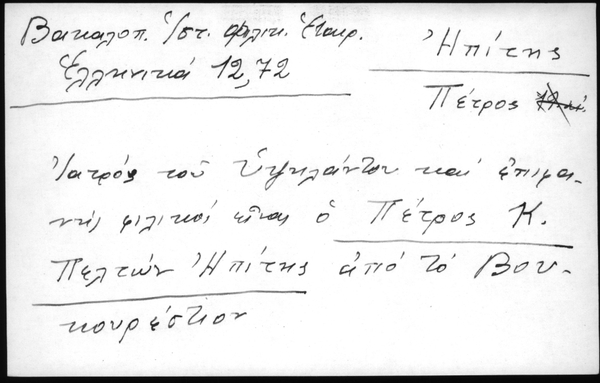 Βακαλοπ. Ἱστ. Φιλικ. Ἑταιρ.
Ἑλληνικά 12, 72
Ἠπίτης
Πέτρος
Ἰατρός τοῦ Ὑψηλάντου καί ἐπιφα-
νής φιλικός εἶναι ὁ Πέτρος Κ.
Πελτών Ἠπίτης ἀπό τό Βου-
κουρέστιον